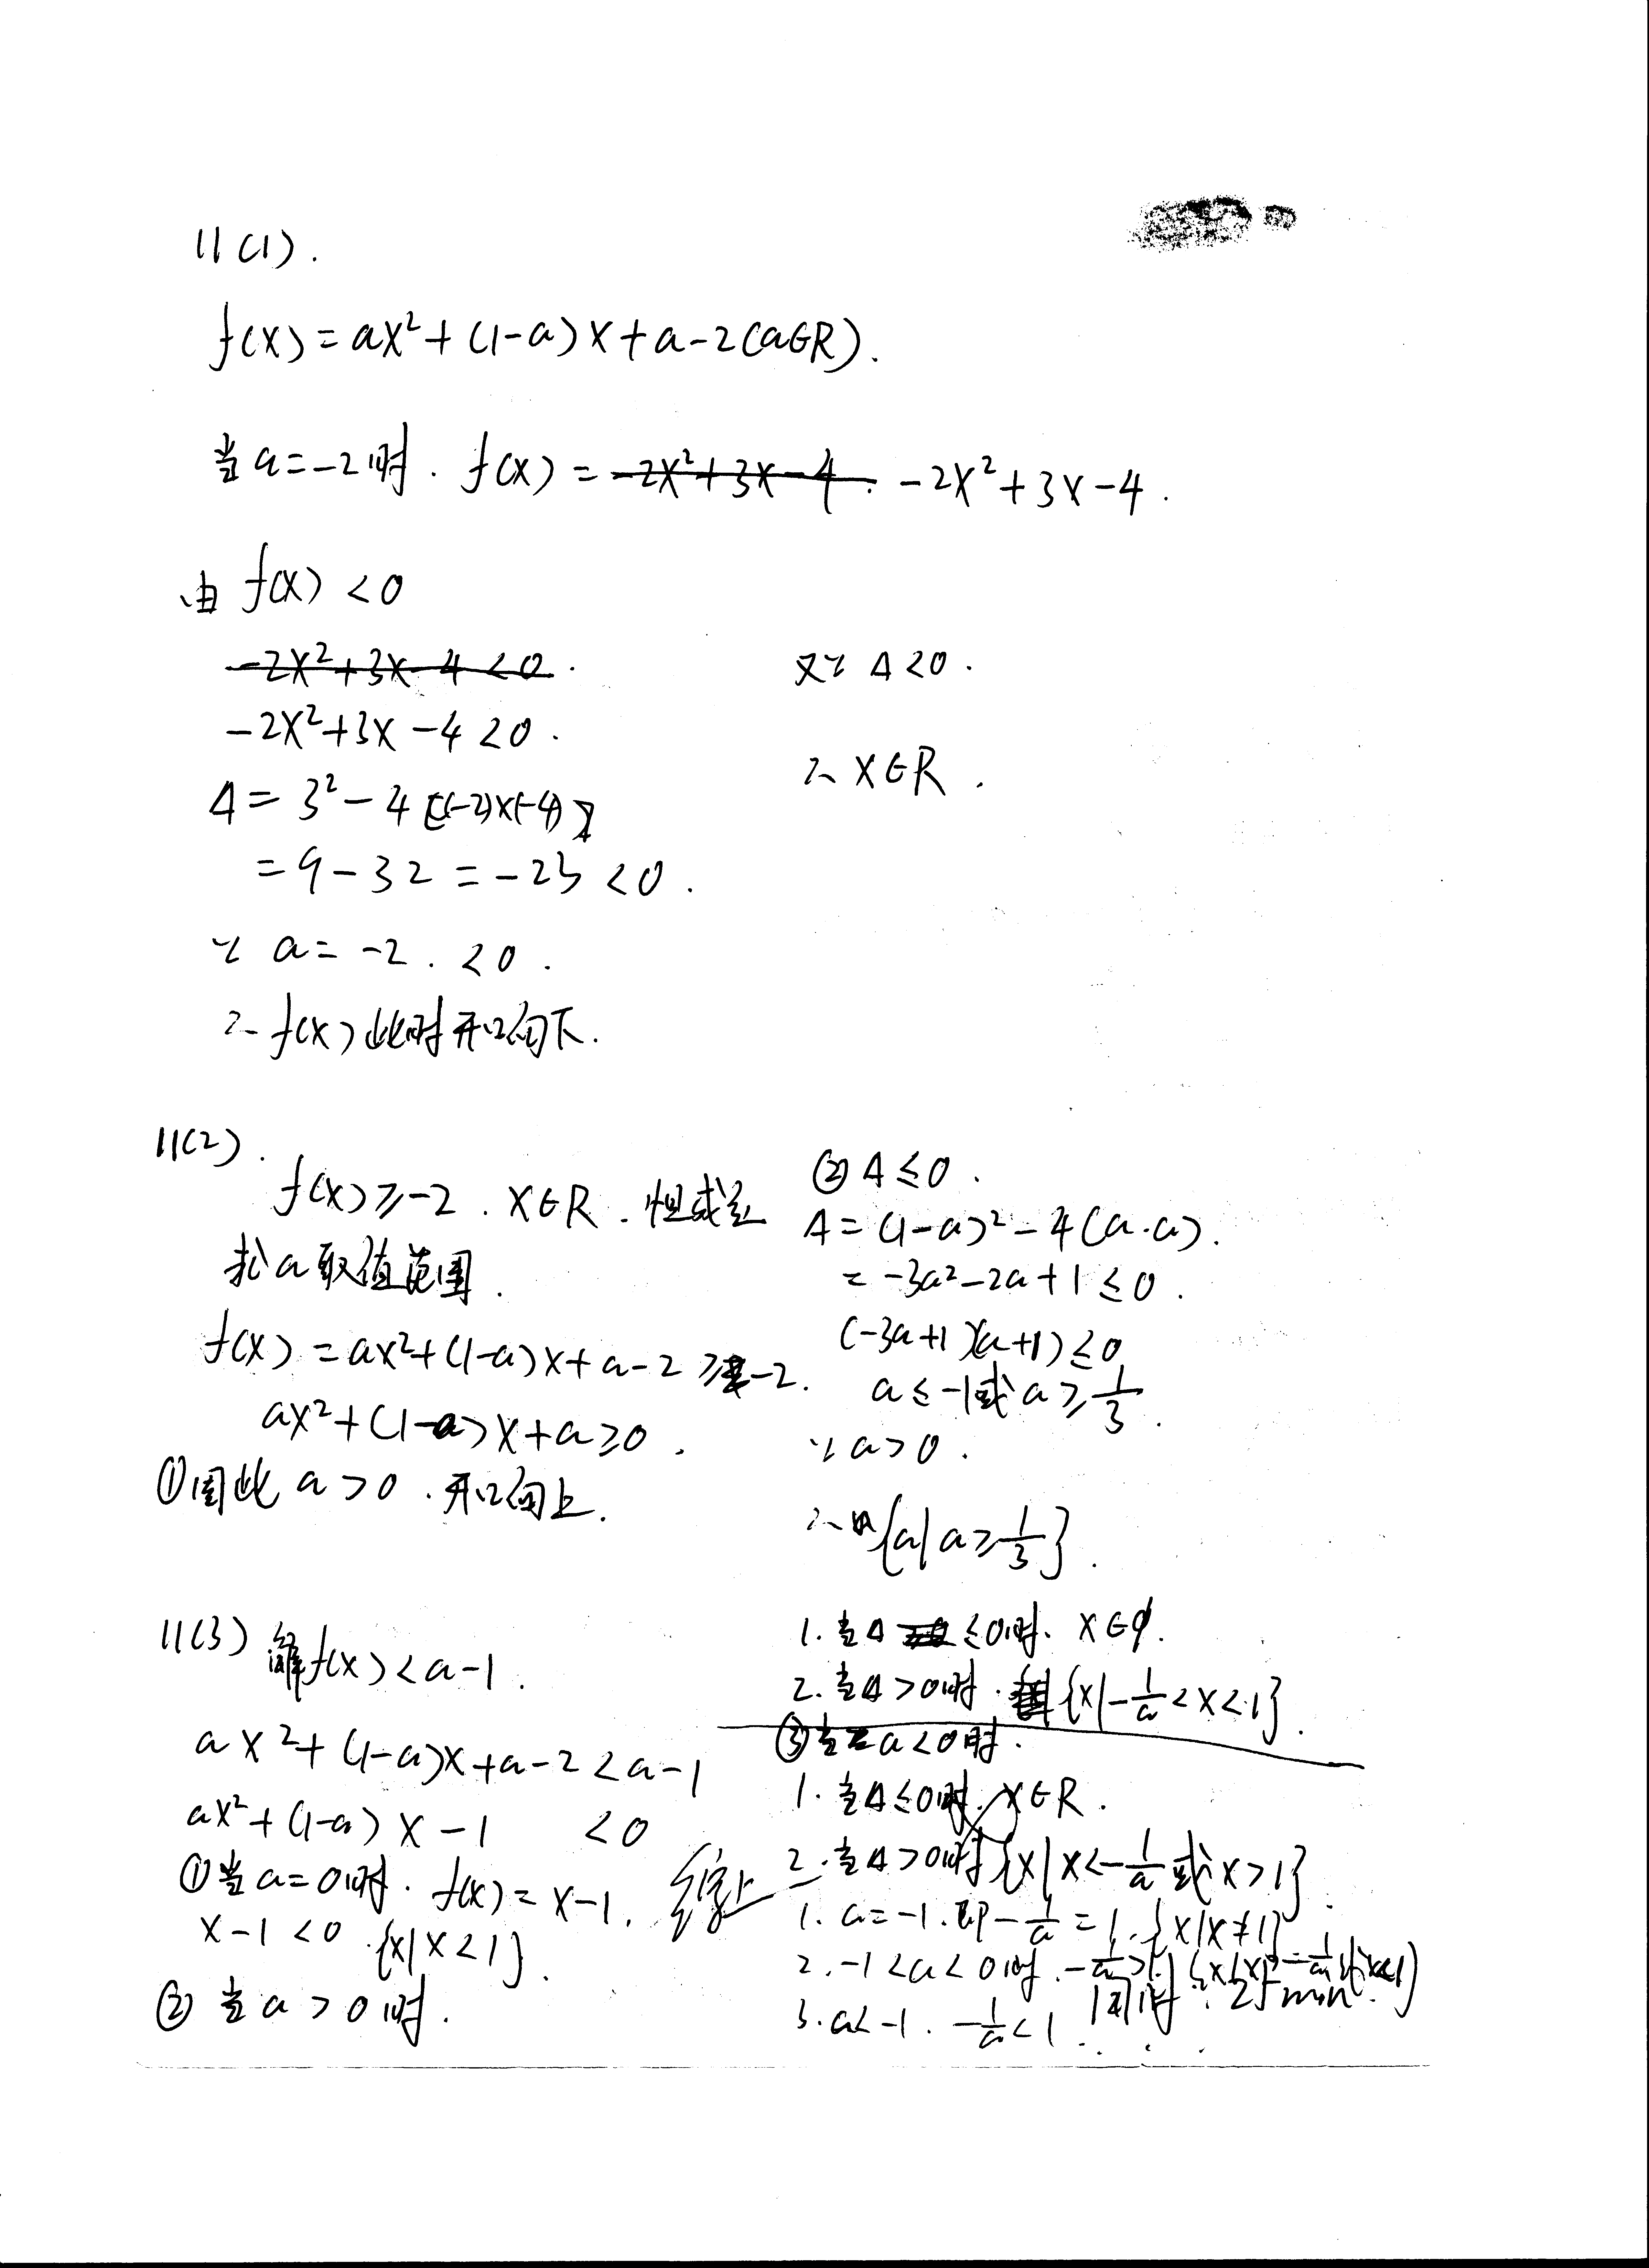 11(1).
f(x)=ax²+(1-a)x+a-2(a∈R).
当a=-2时. f(x)=-2x²+3x-4. -2x²+3x-4.
由 f(x)<0
-2x²+3x-4<0.
-2x²+3x-4<0.
Δ=3²-4[(-2)×(-4)]
=9-32=-23<0.
∵ a=-2.<0.
∴ f(x)此时开口向下.
又∵ Δ<0.
∴ x∈R.
11(2).
f(x)≥-2. x∈R. 恒成立
求a取值范围.
f(x)=ax²+(1-a)x+a-2≥-2.
ax²+(1-a)x+a≥0.
①因此 a>0. 开口向上.
② Δ≤0.
Δ=(1-a)²-4(a·a).
=-3a²-2a+1≤0.
(-3a+1)(a+1)≤0
a≤-1或a≥1/3.
∵ a>0.
∴ {a|a≥1/3}.
11(3) 解f(x)<a-1.
ax²+(1-a)x+a-2<a-1
ax²+(1-a)x-1 <0
①当a=0时. f(x)=x-1.
x-1<0 .{x|x<1}.
② 当a>0时.
1. 当Δ≤0时. x∈∅.
2. 当Δ>0时. {x|-1/a<x<1}.
③当a<0时.
1. 当Δ≤0时. x∈R.
2. 当Δ>0时{x|x<-1/a或x>1}.
综上
1. a=-1. 即-1/a=1. {x|x≠1}
2. -1<a<0时. -1/a>1
3. a<-1. -1/a<1